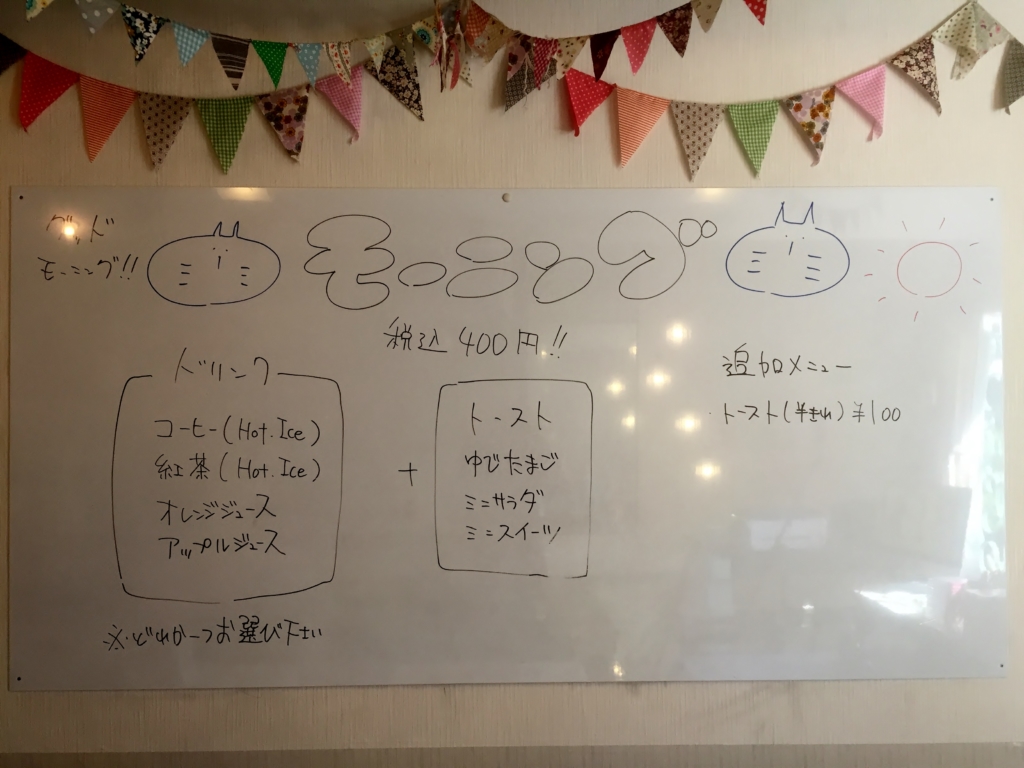 グッド
モーニング!!
モーニング
税込 400円!!
ドリンク
コーヒー(Hot.Ice)
紅茶(Hot.Ice)
オレンジジュース
アップルジュース
※.どれか一つお選び下さい
+
トースト
ゆでたまご
ミニサラダ
ミニスイーツ
追加メニュー
トースト(半きれ)¥100